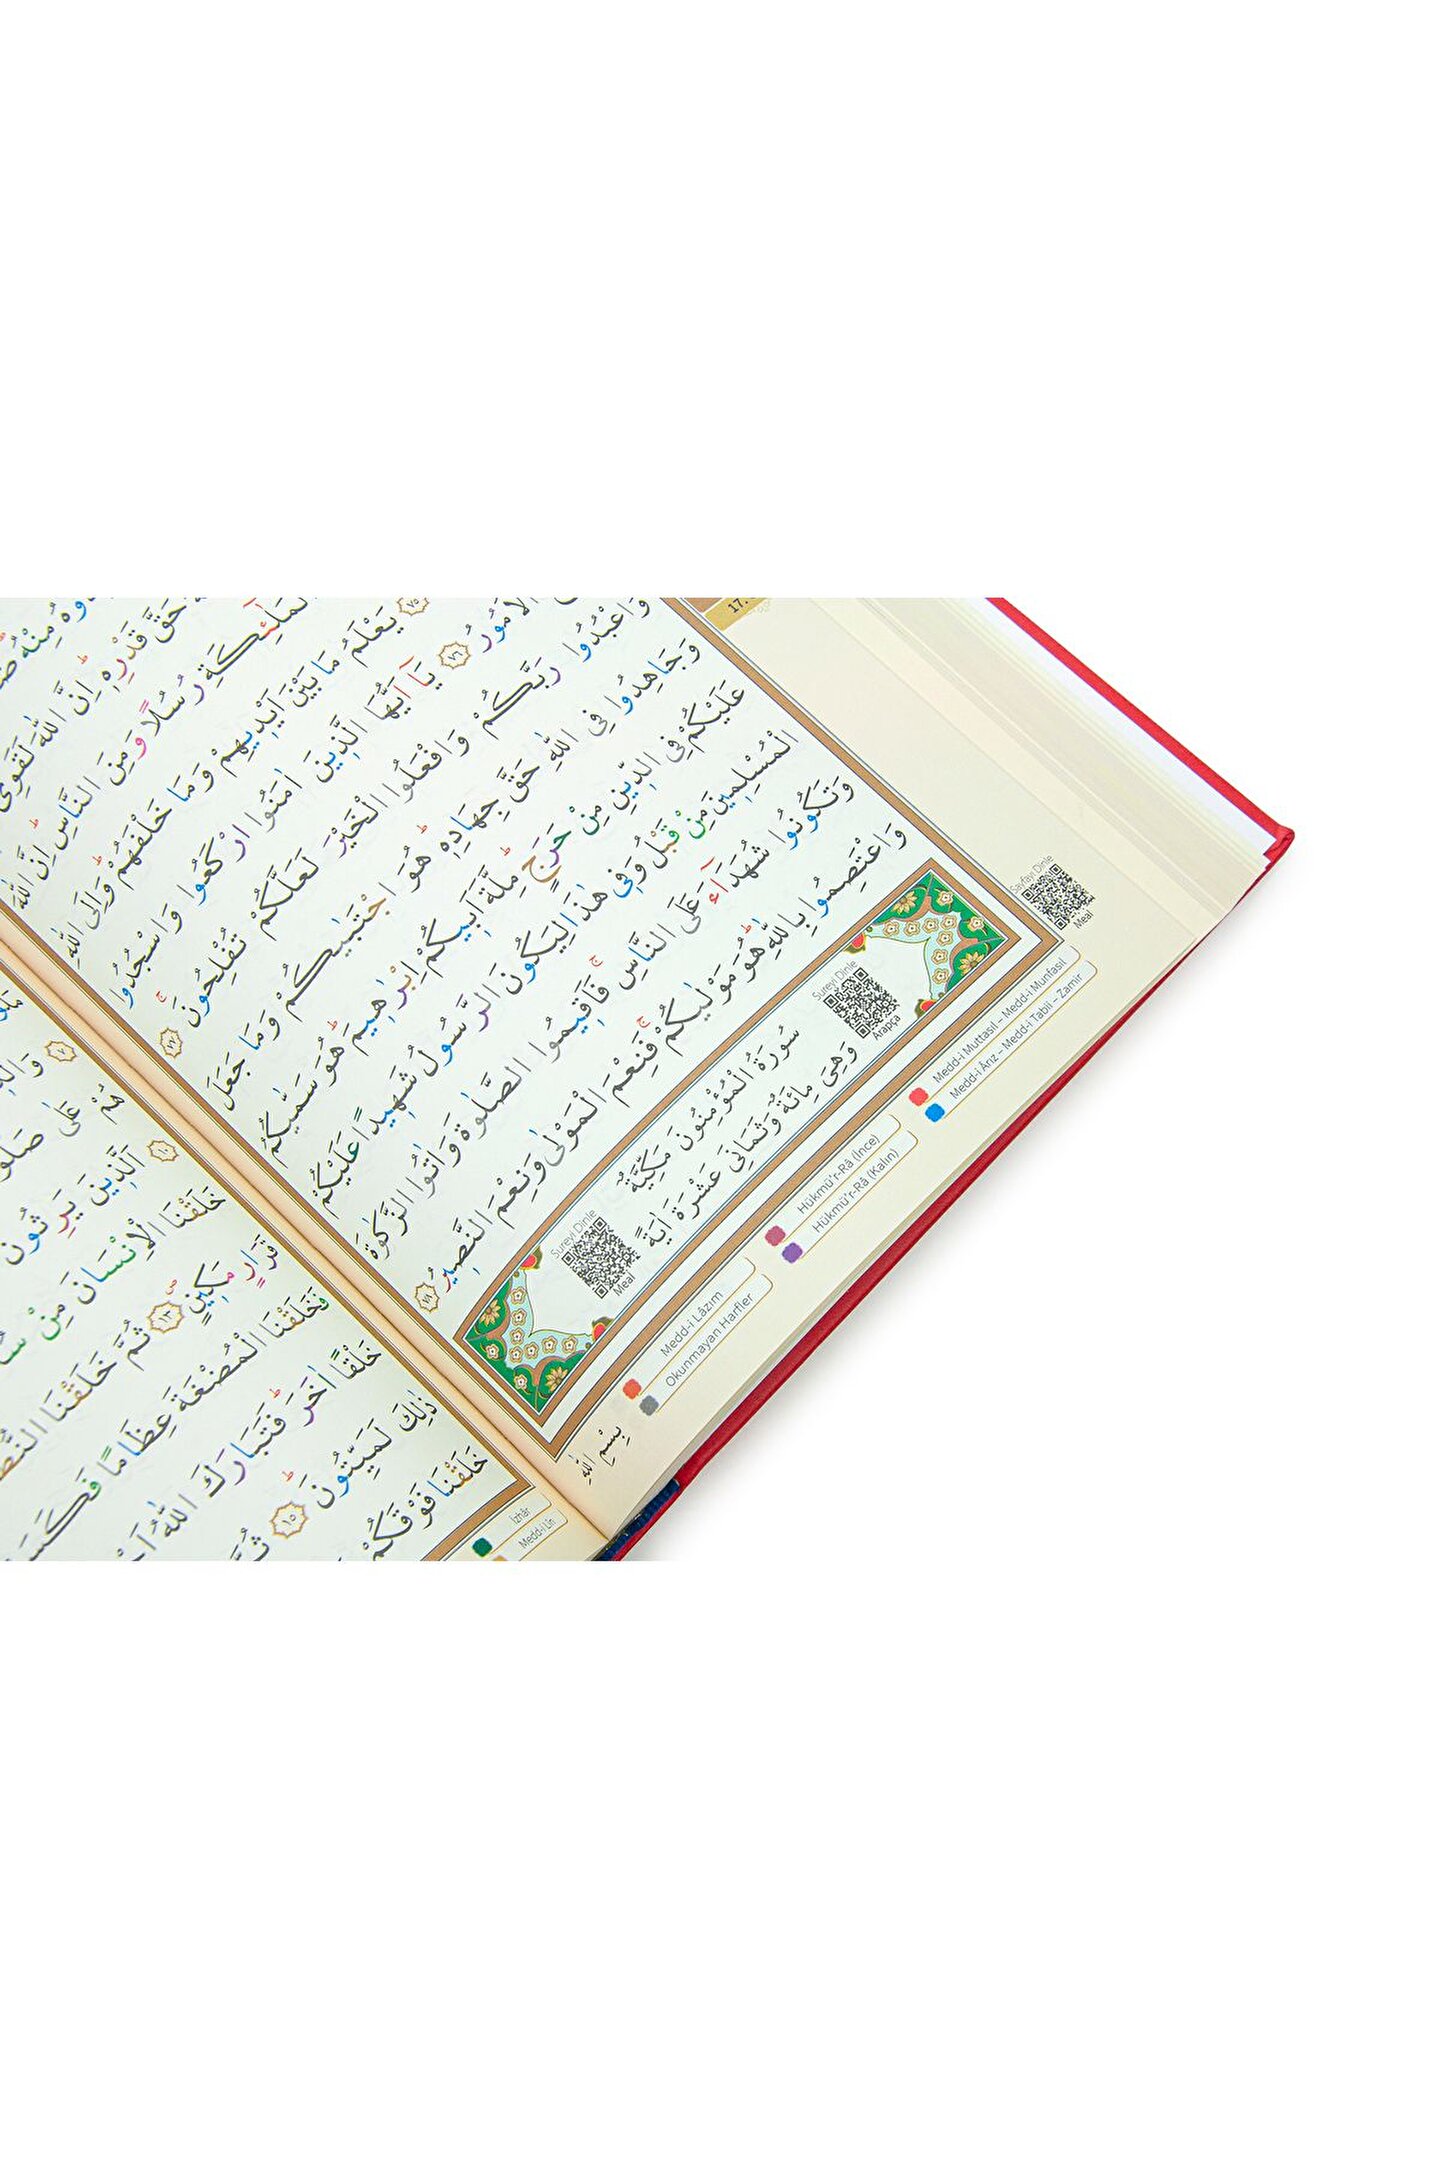 مِنْهُ
حَقَّ قَدْرِهٖ اِنَّ اللّٰهَ لَقَوِىٌّ
الْمَلٰٓئِكَةِ رُسُلًا وَمِنَ النَّاسِ اِنَّ اللّٰهَ
﴿٧٥﴾ يَعْلَمُ مَا بَيْنَ اَيْدٖيهِمْ وَمَا خَلْفَهُمْ وَاِلَى اللّٰهِ
الْاُمُورُ ﴿٧٦﴾ يَٓا اَيُّهَا الَّذٖينَ اٰمَنُوا ارْكَعُوا وَاسْجُدُوا
وَاعْبُدُوا رَبَّكُمْ وَافْعَلُوا الْخَيْرَ لَعَلَّكُمْ تُفْلِحُونَ ﴿٧٧﴾
وَجَاهِدُوا فِى اللّٰهِ حَقَّ جِهَادِهٖ هُوَ اجْتَبٰيكُمْ وَمَا جَعَلَ
عَلَيْكُمْ فِى الدّٖينِ مِنْ حَرَجٍ مِلَّةَ اَبٖيكُمْ اِبْرٰهٖيمَ هُوَ سَمّٰيكُمُ
الْمُسْلِمٖينَ مِنْ قَبْلُ وَفٖى هٰذَا لِيَكُونَ الرَّسُولُ شَهٖيدًا عَلَيْكُمْ
وَتَكُونُوا شُهَدَٓاءَ عَلَى النَّاسِ فَاَقٖيمُوا الصَّلٰوةَ وَاٰتُوا الزَّكٰوةَ
وَاعْتَصِمُوا بِاللّٰهِ هُوَ مَوْلٰيكُمْ فَنِعْمَ الْمَوْلٰى وَنِعْمَ النَّصٖيرُ ﴿٧٨﴾
سُورَةُ الْمُؤْمِنُونَ مَكِّيَّةٌ
وَهِىَ مِائَةٌ وَثَمَانٖى عَشْرَةَ اٰيَةً
Sureyi Dinle
Arapça
Sureyi Dinle
Meal
Sayfayı Dinle
Meal
17.
Medd-i Muttasıl – Medd-i Munfasıl
Medd-i Ârız – Medd-i Tabii – Zamir
Hükmü'r-Râ (İnce)
Hükmü'r-Râ (Kalın)
Medd-i Lâzım
Okunmayan Harfler
بِسْمِ اللّٰهِ
هُمْ عَلٰى
اَلَّذٖينَ يَرِثُونَ
خَلَقْنَا الْاِنْسَانَ مِنْ
قَرَارٍ مَكٖينٍ ﴿١٣﴾ ثُمَّ خَلَقْنَا
فَخَلَقْنَا الْمُضْغَةَ عِظَامًا
خَلْقًا اٰخَرَ فَتَبَارَكَ اللّٰهُ
ذٰلِكَ لَمَيِّتُونَ ﴿١٥﴾
خَلَقْنَا فَوْقَكُمْ
İzhâr
Medd-i Lîn